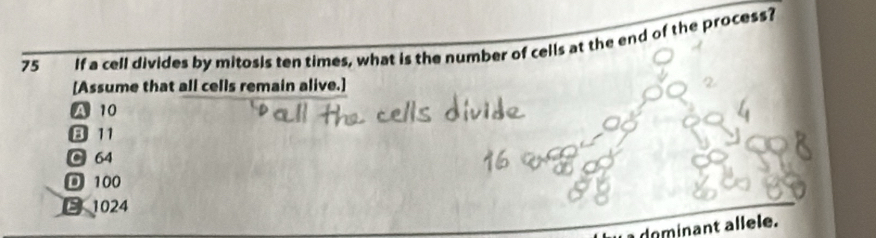 75 If a cell divides by mitosis ten times, what is the number of cells at the end of the process?
[Assume that all cells remain alive.]
A 10
B 11
C 64
D 100
E 1024
all the cells divide
1
2
4
8
16
a dominant allele.